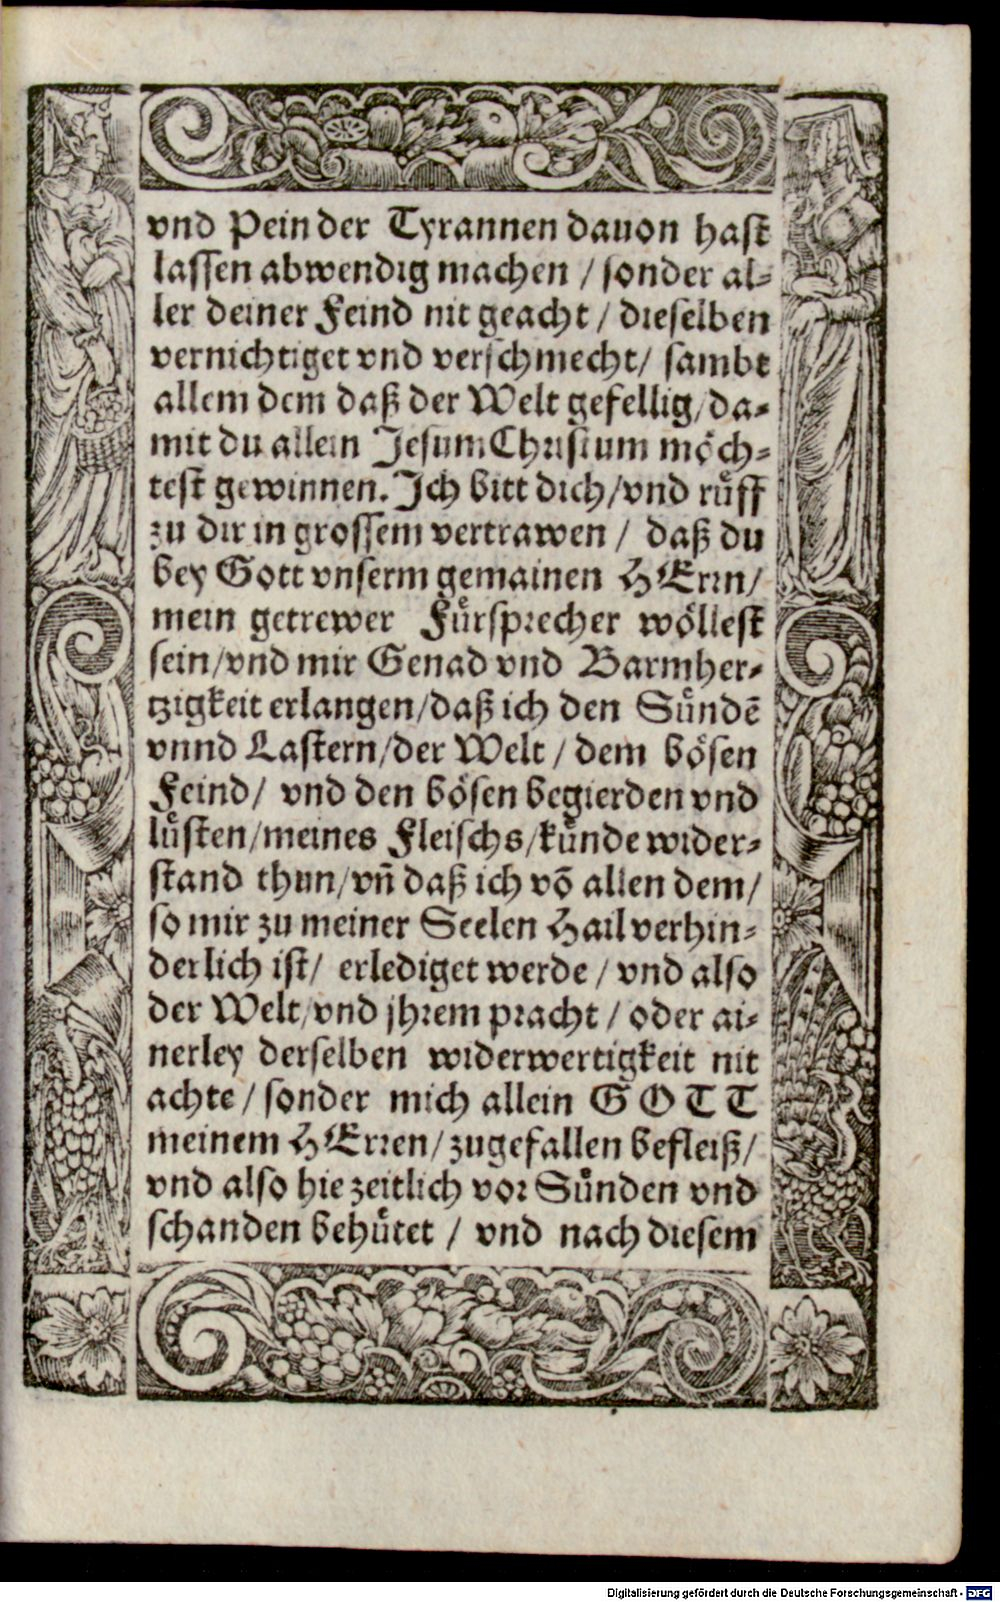 vnd Pein der Tyrannen dauon hast
lassen abwendig machen / sonder al-
ler deiner Feind nit geacht / dieselben
vernichtiget vnd verschmecht / sambt
allem dem daß der Welt gefellig / da-
mit du allein Jesum Christum möch-
test gewinnen. Ich bitt dich / vnd rüff
zu dir in grossem vertrawen / daß du
bey Gott vnserm gemainen HErrn /
mein getrewer Fürsprecher wöllest
sein / vnd mir Genad vnd Barmher-
tzigkeit erlangen / daß ich den Sündē
vnnd Lastern / der Welt / dem bösen
Feind / vnd den bösen begierden vnd
lüsten / meines Fleischs / künde wider-
stand thun / vñ daß ich võ allen dem /
so mir zu meiner Seelen Hail verhin-
derlich ist / erlediget werde / vnd also
der Welt / vnd jhrem pracht / oder ai-
nerley derselben widerwertigkeit nit
achte / sonder mich allein GOTT
meinem HErren / zugefallen befleiß /
vnd also hie zeitlich vor Sünden vnd
schanden behütet / vnd nach diesem
Digitalisierung gefördert durch die Deutsche Forschungsgemeinschaft - DFG